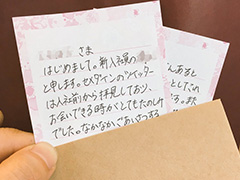 さま
はじめまして。新入社員の
と申します。セメダインのツイッター
は入社前から拝見しており、
お会いできる時がとてもたのしみ
でした。なかなかごあいさつする
んあると